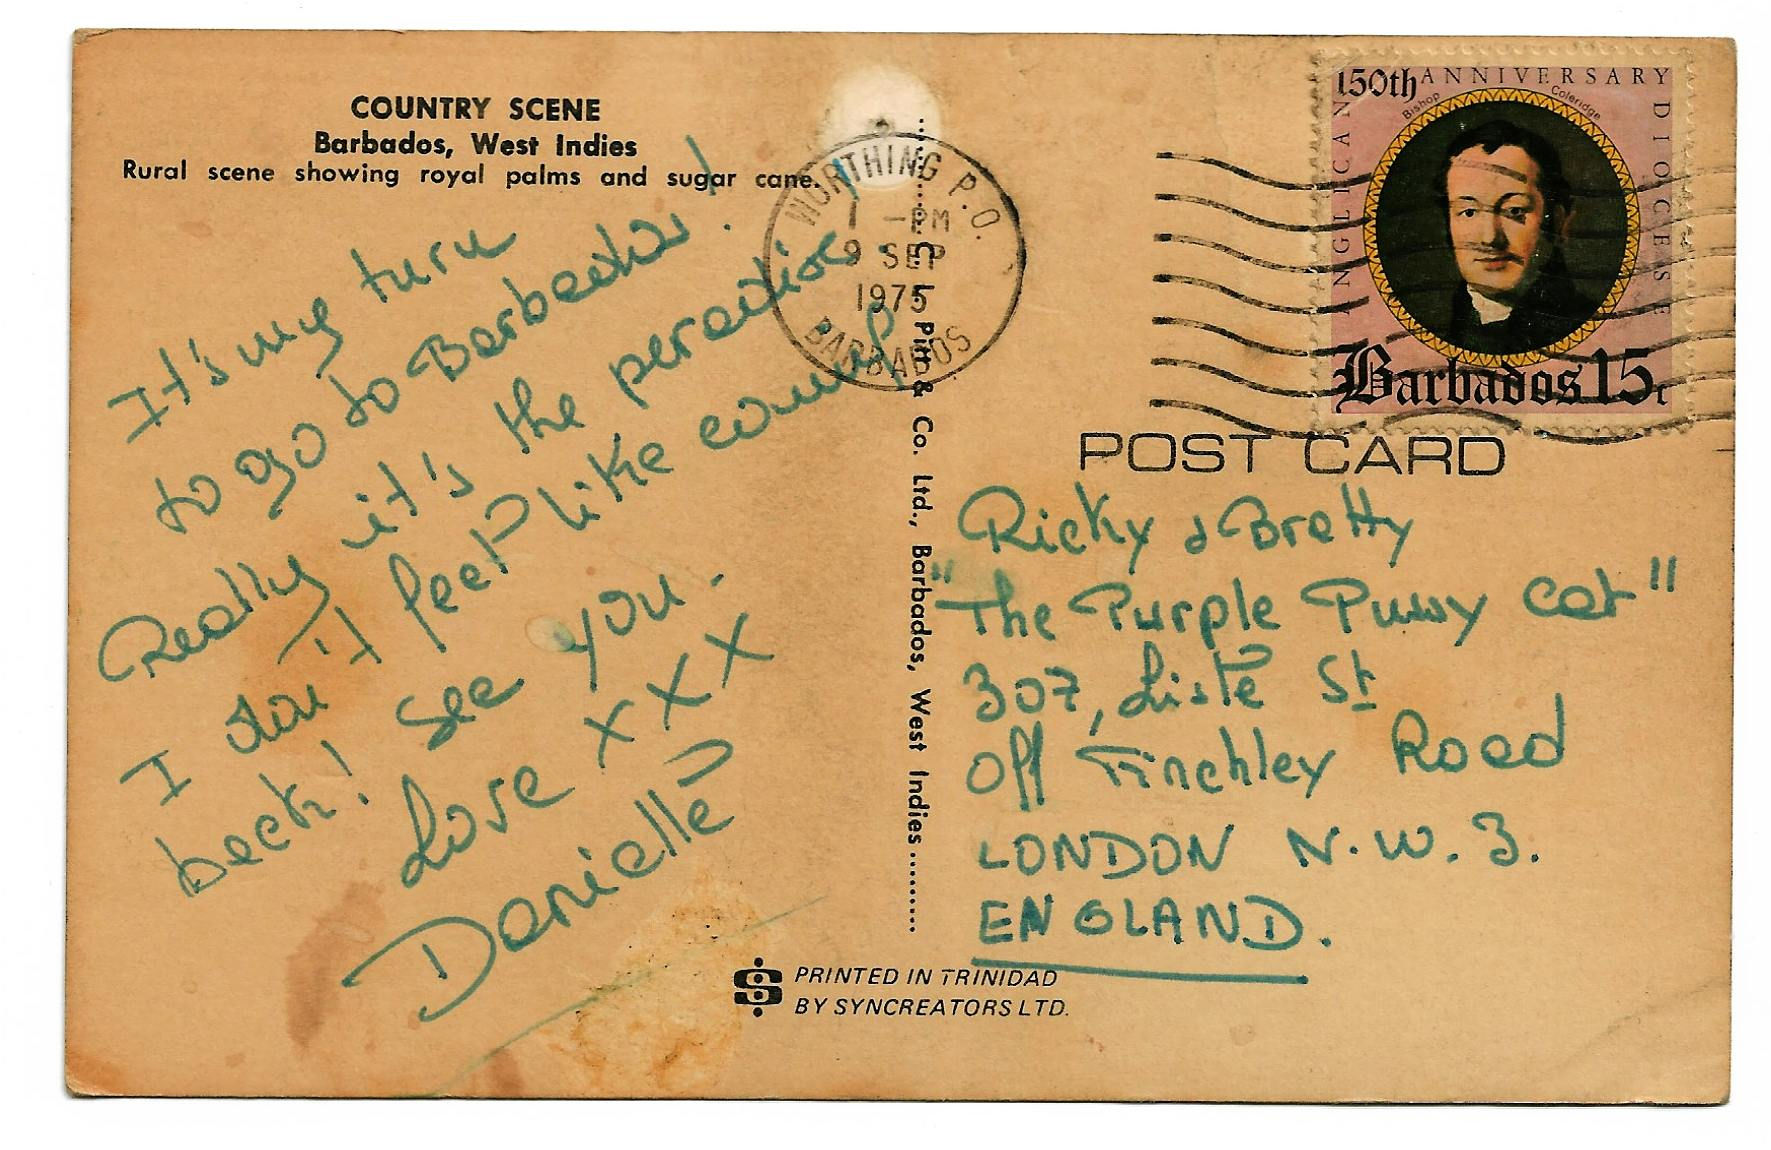 COUNTRY SCENE
Barbados, West Indies
Rural scene showing royal palms and sugar cane.
It's my turn
to go to Barbados!
Really it's the paradise.
I don't feel like coming
back! See you.
Love XXX
Danielle
C. L. Pitt & Co. Ltd., Barbados, West Indies
WORTHING P.O.
1 - PM
9 SEP
1975
BARBADOS
150th ANNIVERSARY
ANGLICAN
DIOCESE
Bishop Coleridge
Barbados 15c
POST CARD
Ricky & Bretty
"The Purple Pussy Cat"
307, Liste St
Off Finchley Road
LONDON N.W.3.
ENGLAND.
PRINTED IN TRINIDAD
BY SYNCREATORS LTD.